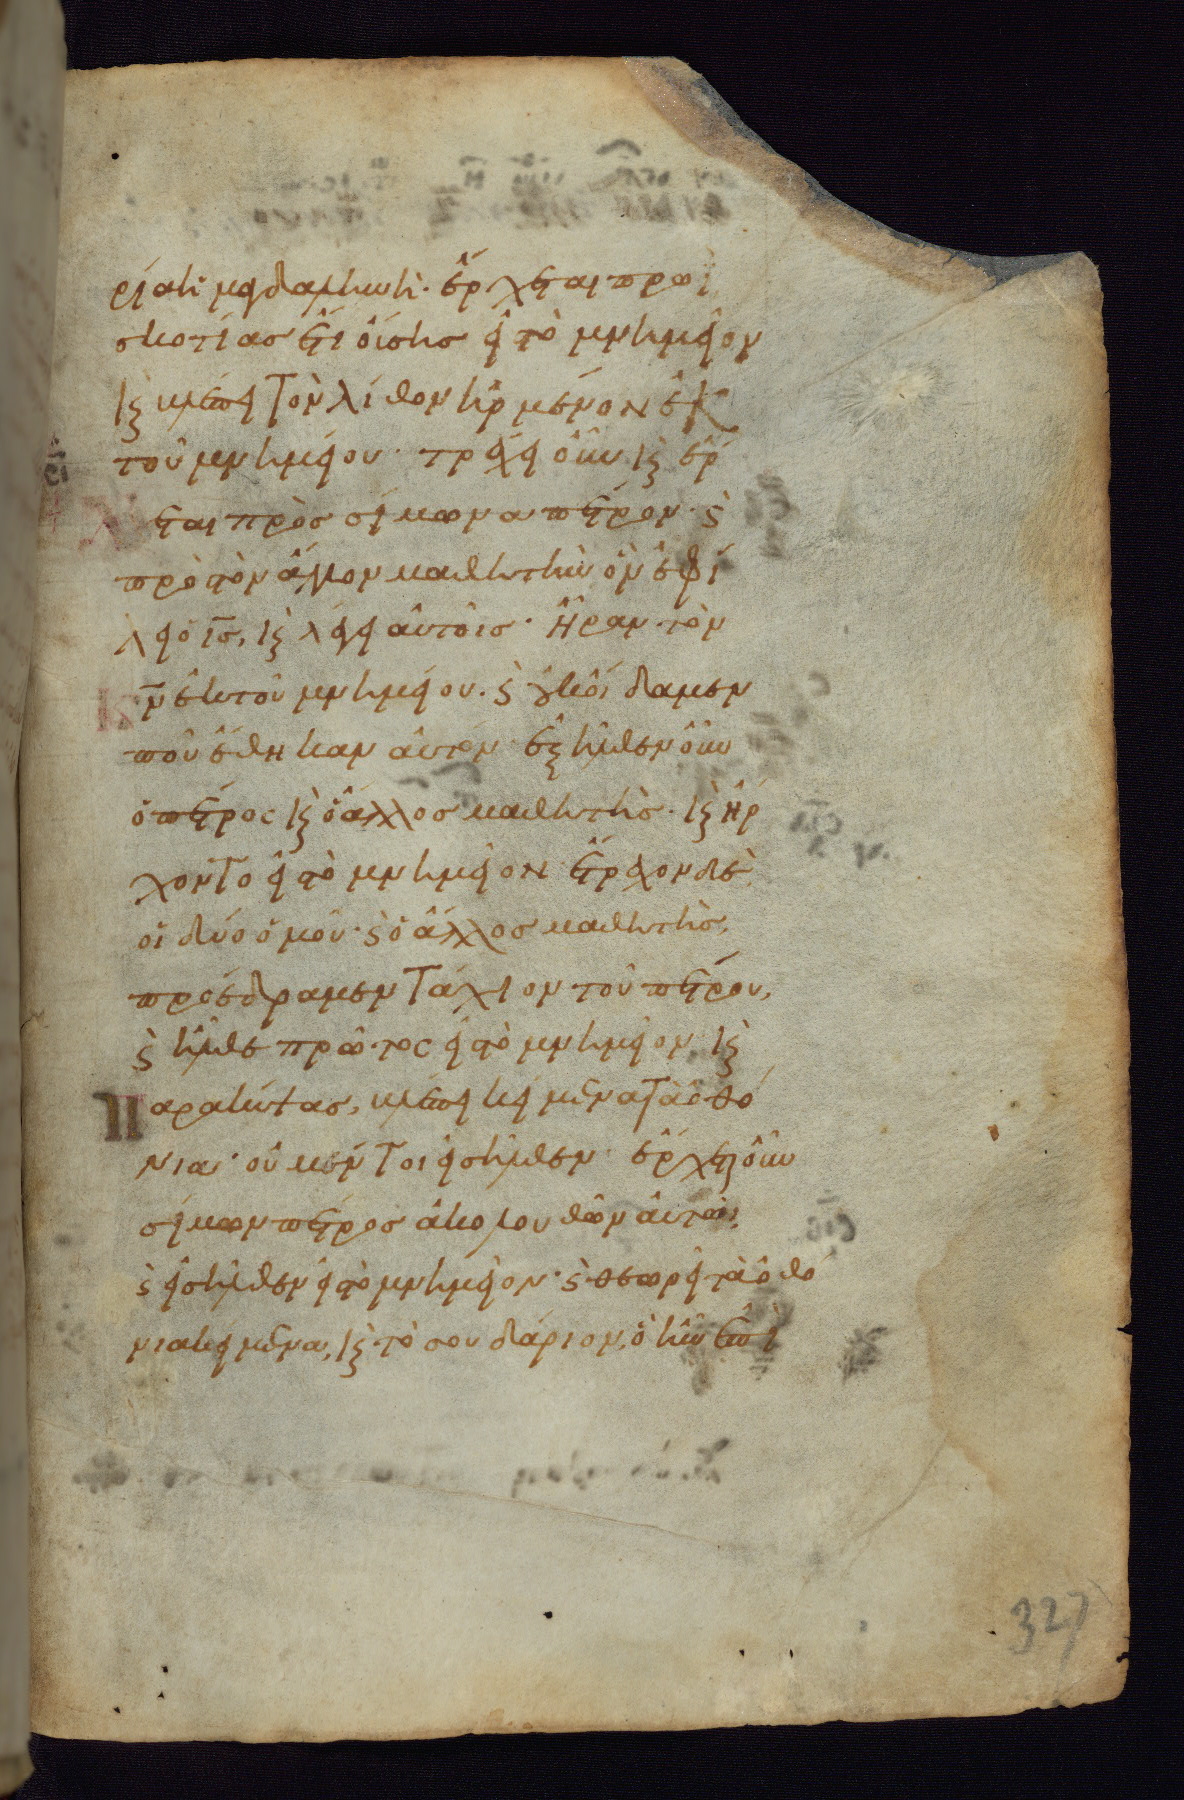 ρία ἡ μαγδαληνὴ· ἔρχεται πρωῒ
σκοτίας ἔτι οὔσης εἰς τὸ μνημεῖον
καὶ βλέπει τὸν λίθον ἠρμένον ἐκ
τοῦ μνημείου· τρέχει οὖν καὶ ἔρ
χεται πρὸς σίμωνα πέτρον· καὶ
πρὸς τὸν ἄλλον μαθητὴν ὃν ἐφί
λει ὁ ις̅, καὶ λέγει αὐτοῖς· Ἦραν τὸν
κ̅ν̅ ἐκ τοῦ μνημείου· καὶ οὐκ οἴδαμεν
ποῦ ἔθηκαν αὐτόν· ἐξῆλθεν οὖν
ὁ πέτρος καὶ ὁ ἄλλος μαθητὴς· καὶ ἤρ
χοντο εἰς τὸ μνημεῖον ἔτρεχον δὲ
οἱ δύο ὁμοῦ· καὶ ὁ ἄλλος μαθητὴς,
προέδραμεν τάχιον τοῦ πέτρου,
καὶ ἦλθε πρῶτος εἰς τὸ μνημεῖον, καὶ
παρακύψας, βλέπει κείμενα τὰ ὀθό
νια· οὐ μέντοι εἰσῆλθεν· ἔρχεται οὖν
σίμων πέτρος ἀκολουθῶν αὐτῶι,
καὶ εἰσῆλθεν εἰς τὸ μνημεῖον· καὶ θεωρεῖ τὰ ὀθό
νια κείμενα, καὶ τὸ σουδάριον, ὃ ἦν ἐπὶ
327